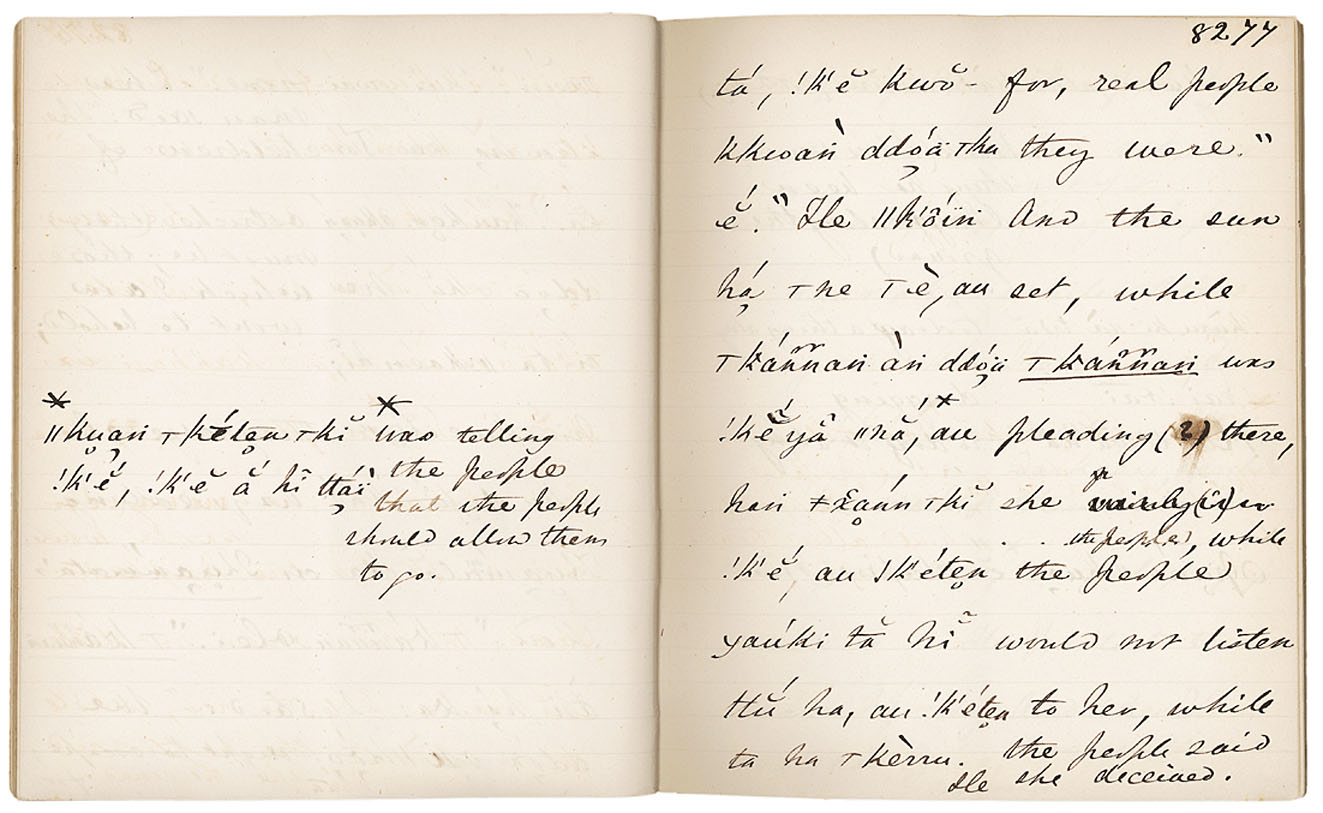 *
||kuan ⊤kéten ⊤kĭ
!k'ĕ́, !k'ĕ ắ hĭ ttáï
* was telling
the people
that the people
should allow them
to go.
8277
tá, !k'ĕ kwŏ- for, real people
kkwaǹ ddóä ⊤ku they were."
ĕ́." He ||k'ŏ́ïn And the sun
há ⊤ne ⊤è, au set, while
⊤kánnan àn ddóä ⊤kánnan was
!kĕ́ yâ ||ná,* au pleading (?) there,
han ǂxaún ⊤kĭ she
the people, while
!k'ĕ́, au !k'éten the people
yaúki tă hĭ would not listen
ttú́ ha, au !k'éten to her, while
ta ha ⊤kèrru. the people said
He she deceived.